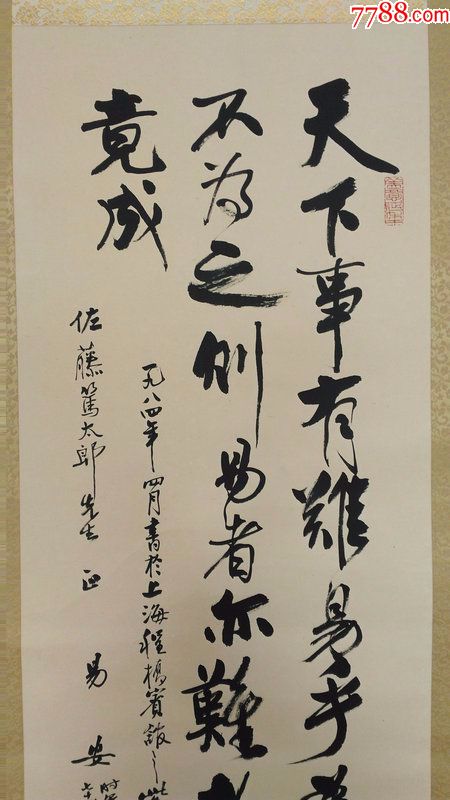 天下事有难易乎為
不為之则易者亦難
竟成
一九八四年四月書於上海程橋賓館
佐藤篤太郎先生正
易安
7788.com